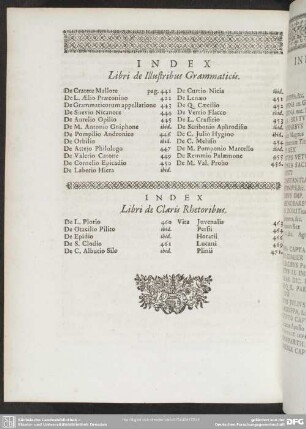 INDEX
Libri de Illustribus Grammaticis.
De Cratete Mallote pag. 441
De L. Ælio Præconino 442
De Grammaticorum appellatione 443
De Sævio Nicanore 444
De Aurelio Opilio 445
De M. Antonio Gniphone ibid.
De Pompilio Andronico 446
De Orbilio ibid.
De Atteio Philologo 447
De Valerio Catone 449
De Cornelio Epicado 451
De Laberio Hiera ibid.
De Curtio Nicia ibid.
De Lenæo 451
De Q. Cæcilio 452
De Verrio Flacco ibid.
De L. Crassitio 453
De Scribonio Aphrodisio ibid.
De C. Julio Hygino ibid.
De C. Melisso 454
De M. Pomponio Marcello ibid.
De Remmio Palæmone 455
De M. Val. Probo
INDEX
Libri de Claris Rhetoribus.
De L. Plotio 460
De Otacilio Pilito ibid.
De Epidio ibid.
De S. Clodio 461
De C. Albutio Silo ibid.
Vita Juvenalis
Persii
Horatii
Lucani
Plinii